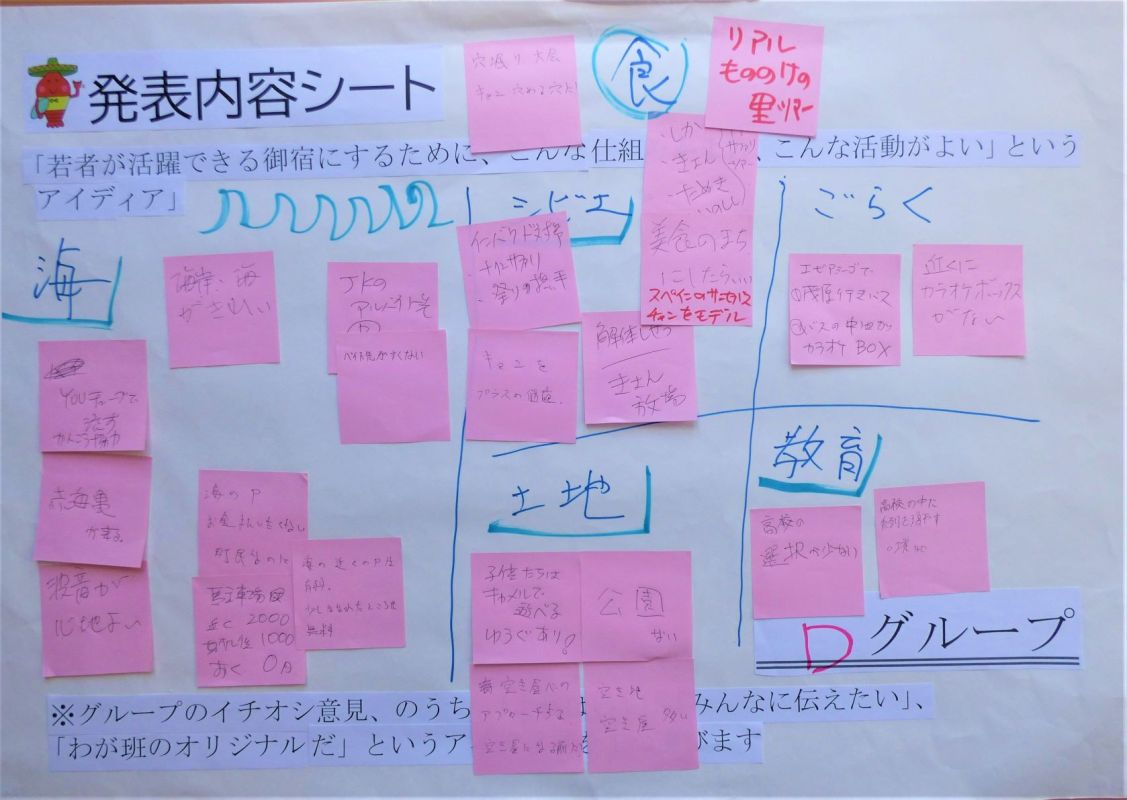 発表内容シート
穴掘り大会
食
リアル
もののけの
里ツアー
「若者が活躍できる御宿にするために、こんな仕組
、こんな活動がよい」という
アイディア」
・しか
・きょん
・たぬき
いのしし
サファリ
ツアー
海
ジビエ
ごらく
海岸、海
がきれい
JKの
バイト先がすくない
YOUチューブで
流す
かんこう協力
赤海亀
波音が
心地よい
海のP
町民
近く 2000
1000
おく 0円
海の近くのPは
有料
無料
インバウンド対策
ナイトサファリ
・祭りの担い手
美食のまち
にしたらいい
スペインのサンセバス
チャンをモデル
キョンを
プラスの
解体しせつ
きょん
牧場
エビアミーゴで
①茂原行きバス
②バスの中
カラオケBOX
近くに
カラオケボックス
がない
土地
教育
子供たちは
キャメルで
遊べる
ゆうぐあり!
公園
ない
空き家への
アプローチする
空き家になる前に
空き地
空き家 多い
高校の
選択が少ない
高校の中に
Dグループ
※グループのイチオシ意見、のうち
みんなに伝えたい」、
「わが班のオリジナルだ」というア
がます